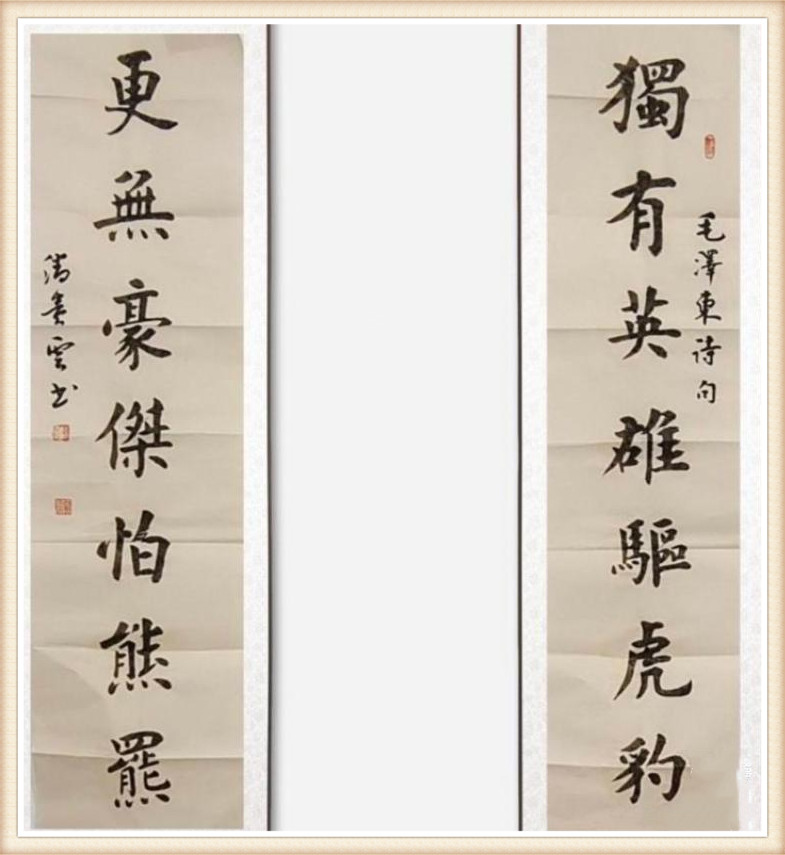 獨有英雄驅虎豹
毛澤東诗句
更無豪傑怕熊羆
书